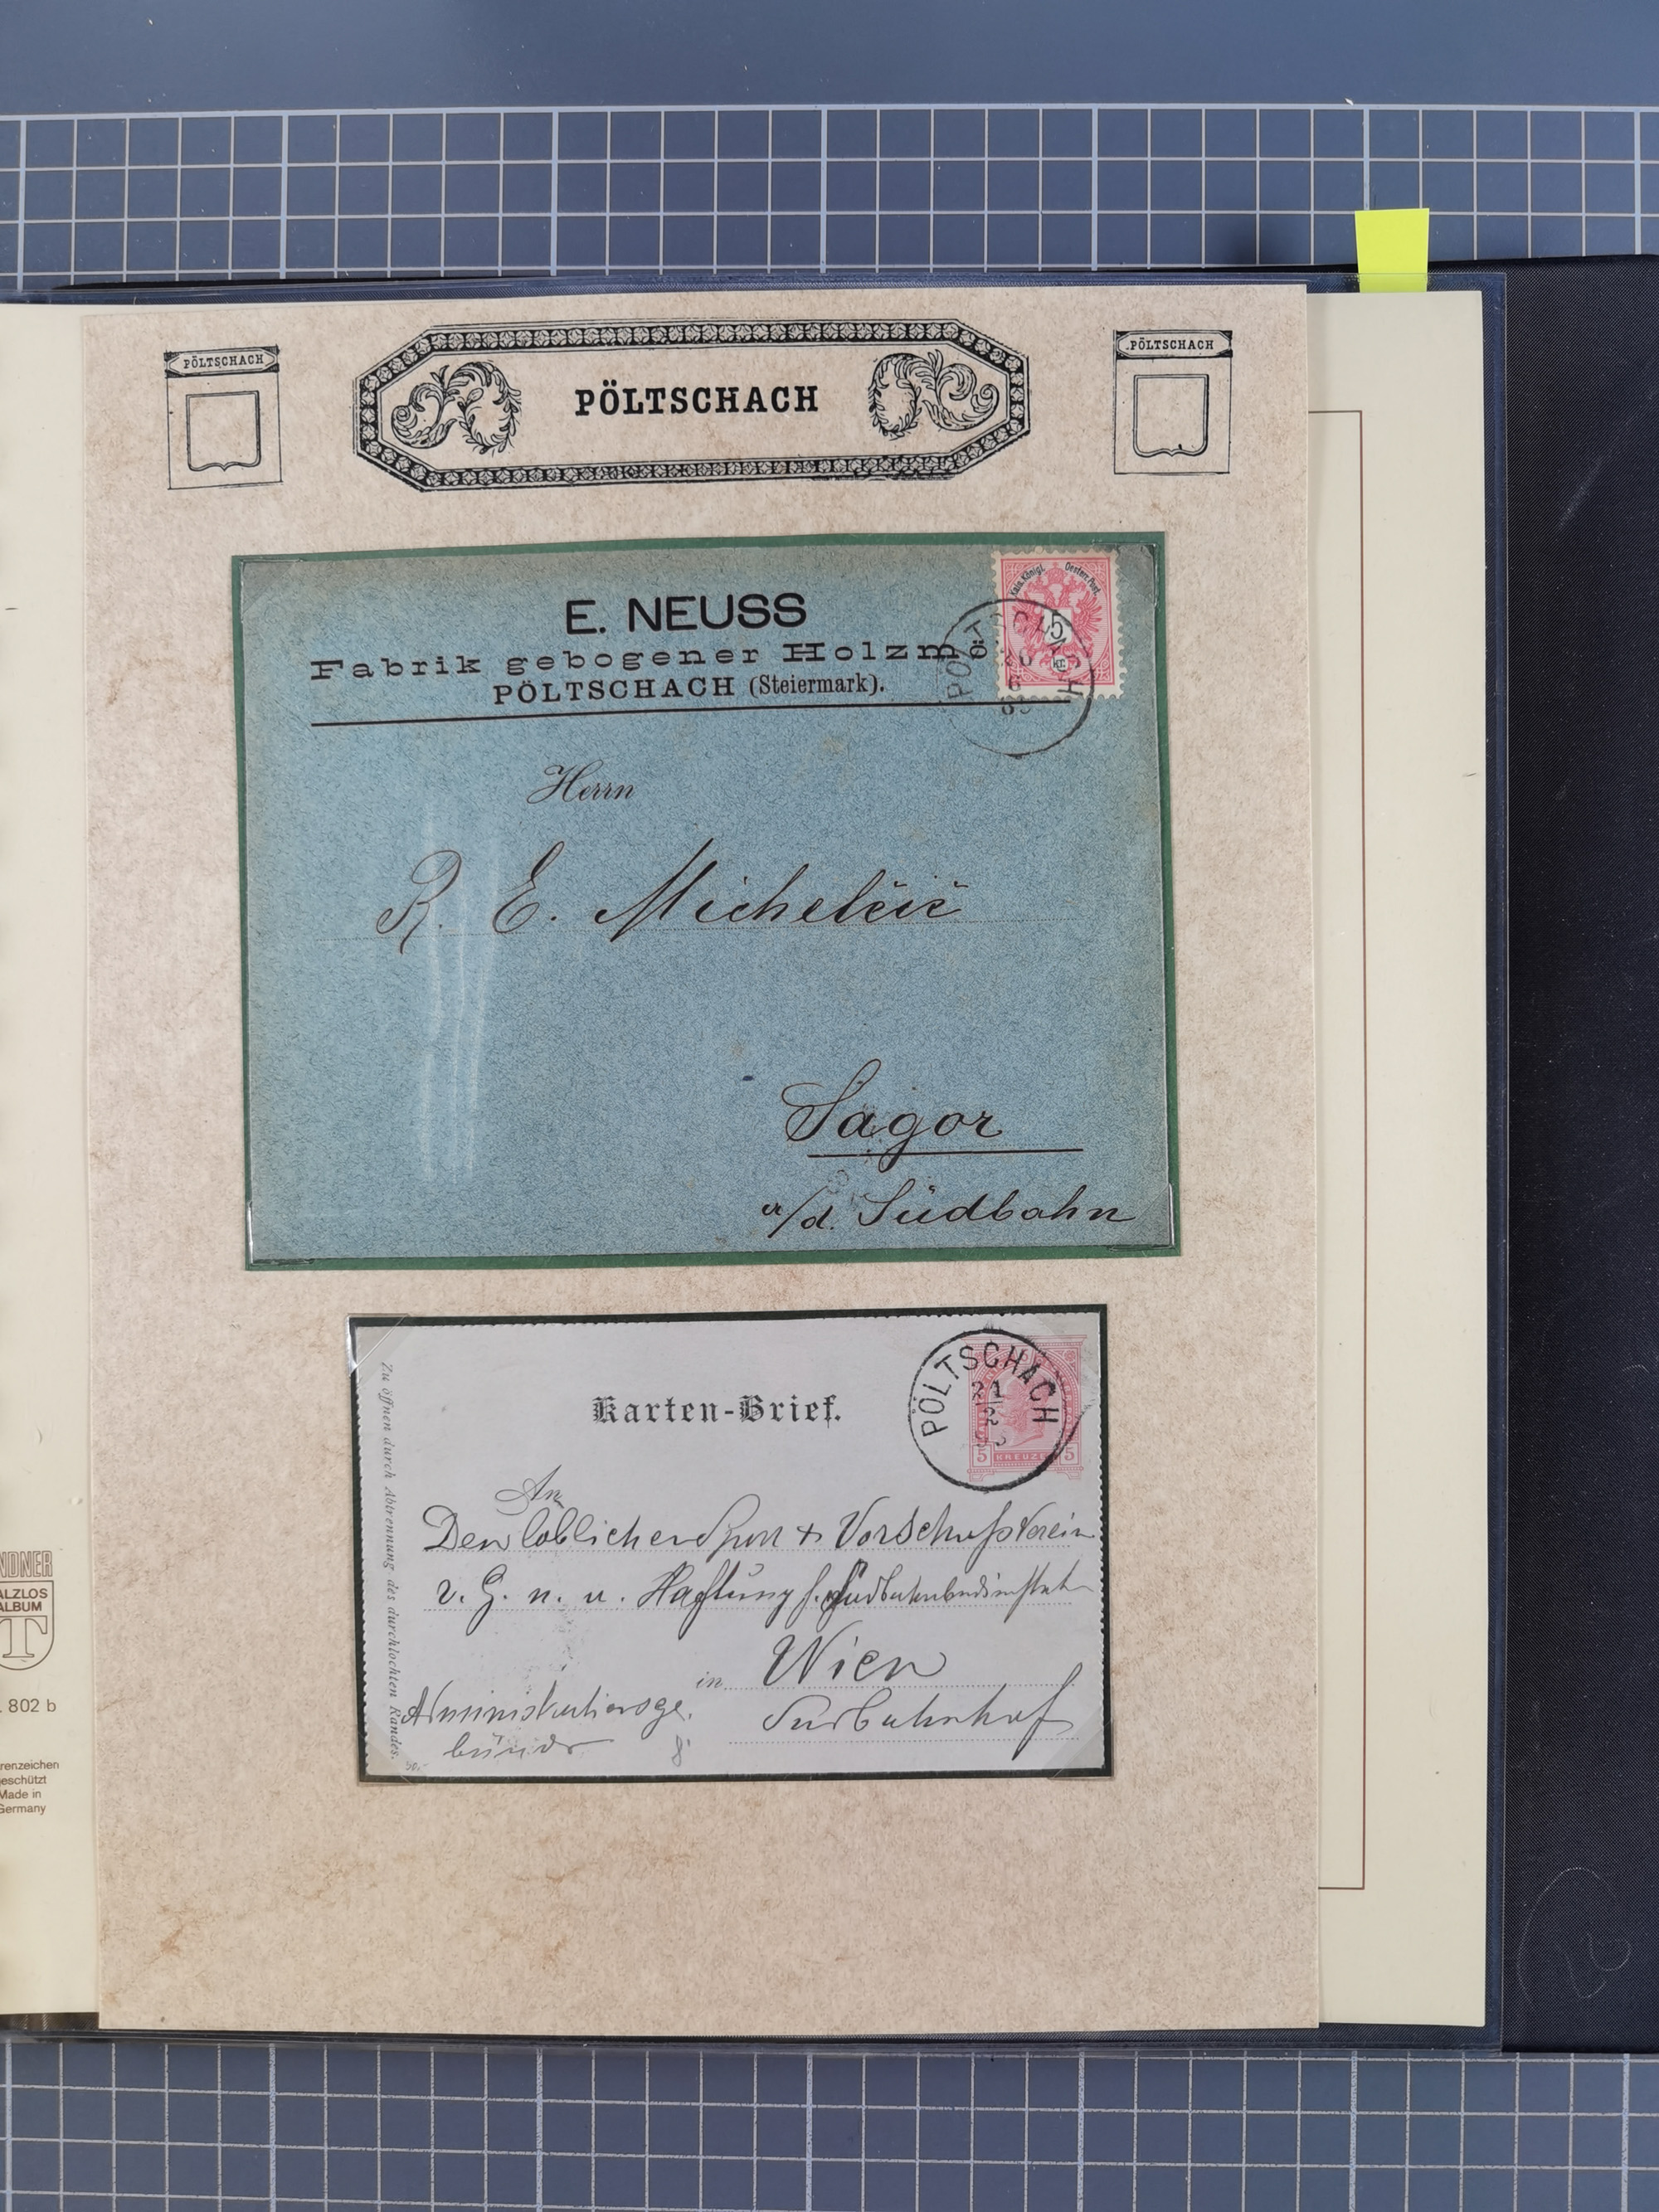 PÖLTSCHACH
PÖLTSCHACH
PÖLTSCHACH
E. NEUSS
Fabrik gebogener Holzmö
PÖLTSCHACH (Steiermark).
Kais. Königl. Oesterr. Post.
5
kr.
PÖLTSCHACH
Herrn
R. E. Michelčič
Sagor
a/d. Südbahn
Karten-Brief.
PÖLTSCHACH
21
2
5 KREUZER 5
Zu öffnen durch Abtrennung des durchlochten Randes.
An
Den löblichen Spar + Vorschuß Verein
r. G. n. u. Haftung f. Südbahnbediensteten
in Wien
Südbahnhof
Administrationsge.
bäude
NDNER
ALZLOS
ALBUM
T
. 802 b
renzeichen
eschützt
Made in
Germany